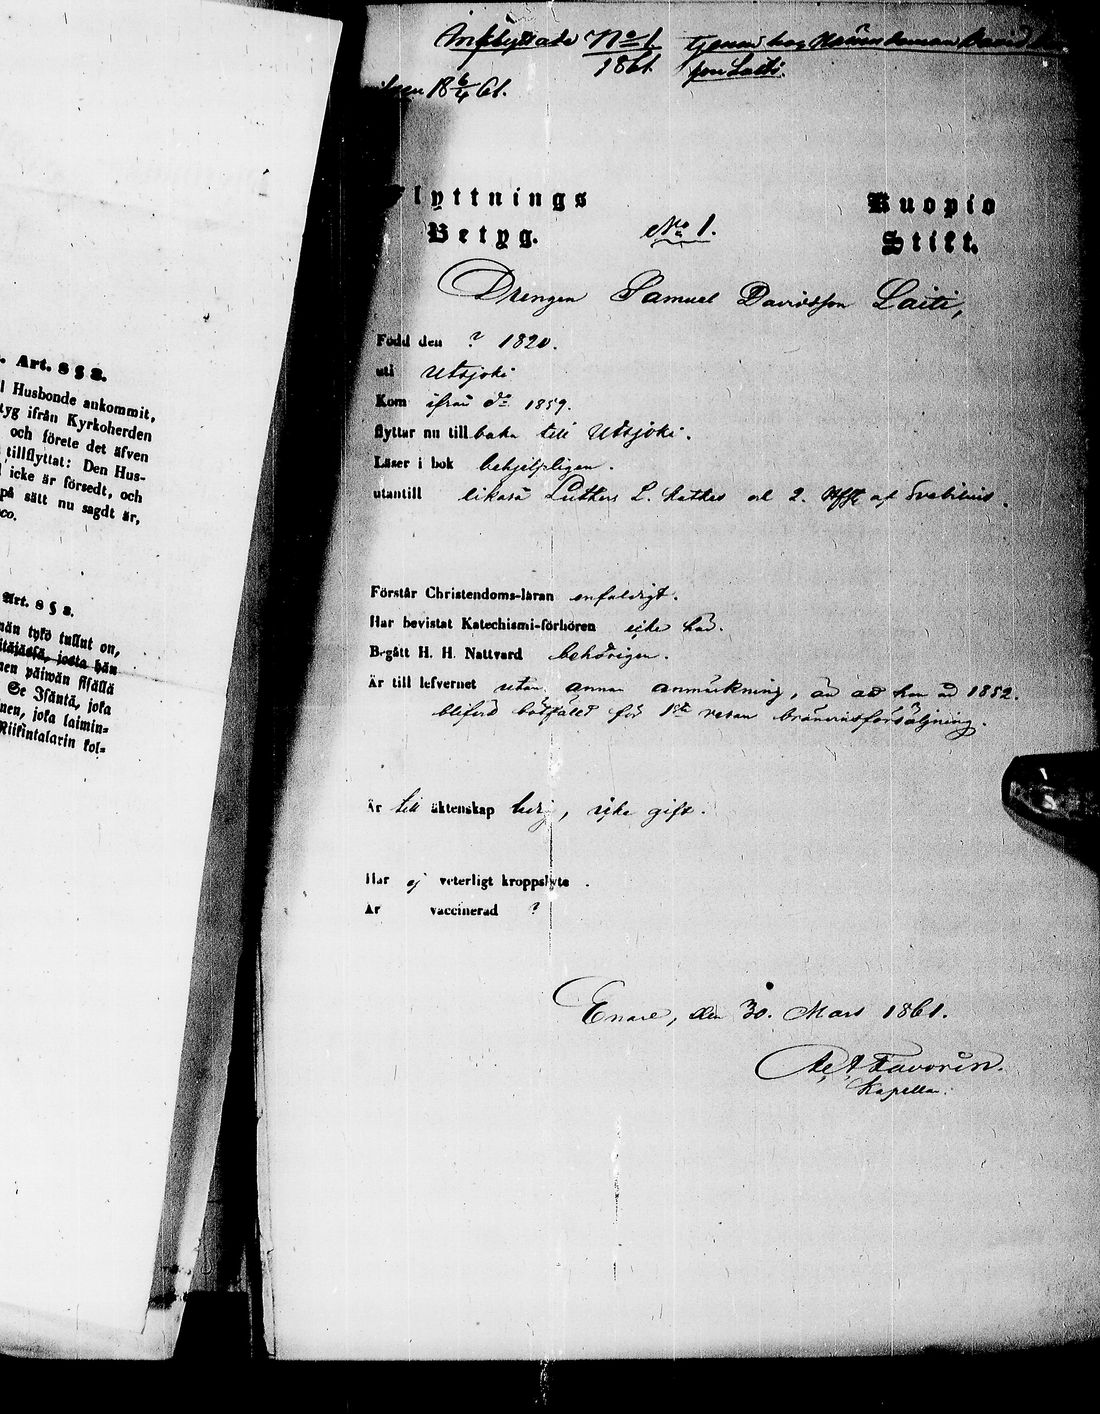 Art. 8 § 2.
l Husbonde ankommit,
tyg ifrån Kyrkoherden
och förete det äfven
tillflyttat: Den Hus-
icke är försedt, och
på sätt nu sagdt är,
co.
Art. 8 § 2.
tykö tullut on,
josta hän
nen päiwän sisällä
Se Isäntä, joka
nen, joka laimin-
Riikintalarin kol-
Inflyttade No 1 tjenar hos Nämndeman David
1861 son Laiti.
18 6/4 61.
Flyttnings Kuopio
Betyg. No 1. Stift.
Drengen Samuel Davidsson Laiti,
Född den ? 1820.
uti Utsjoki
Kom ifrån do 1859.
flyttar nu tillbaka till Utsjoki.
Läser i bok behjelpligen.
utantill likaså Luthers L. Kathes och 2. af Svebilius.
Förstår Christendoms-läran enfaldigt.
Har bevistat Katechismi-förhören icke här.
Begått H. H. Nattvard behörigen.
Är till lefvernet utan annan anmärkning, än att han år 1852.
blifvit bötfäld för 1sta resan bränvinsförsäljning.
Är till äktenskap ledig, icke gift.
Har ej veterligt kroppslyte.
Är vaccinerad ?
Enare, den 30. Mars 1861.
Favorin.
Kapellan.